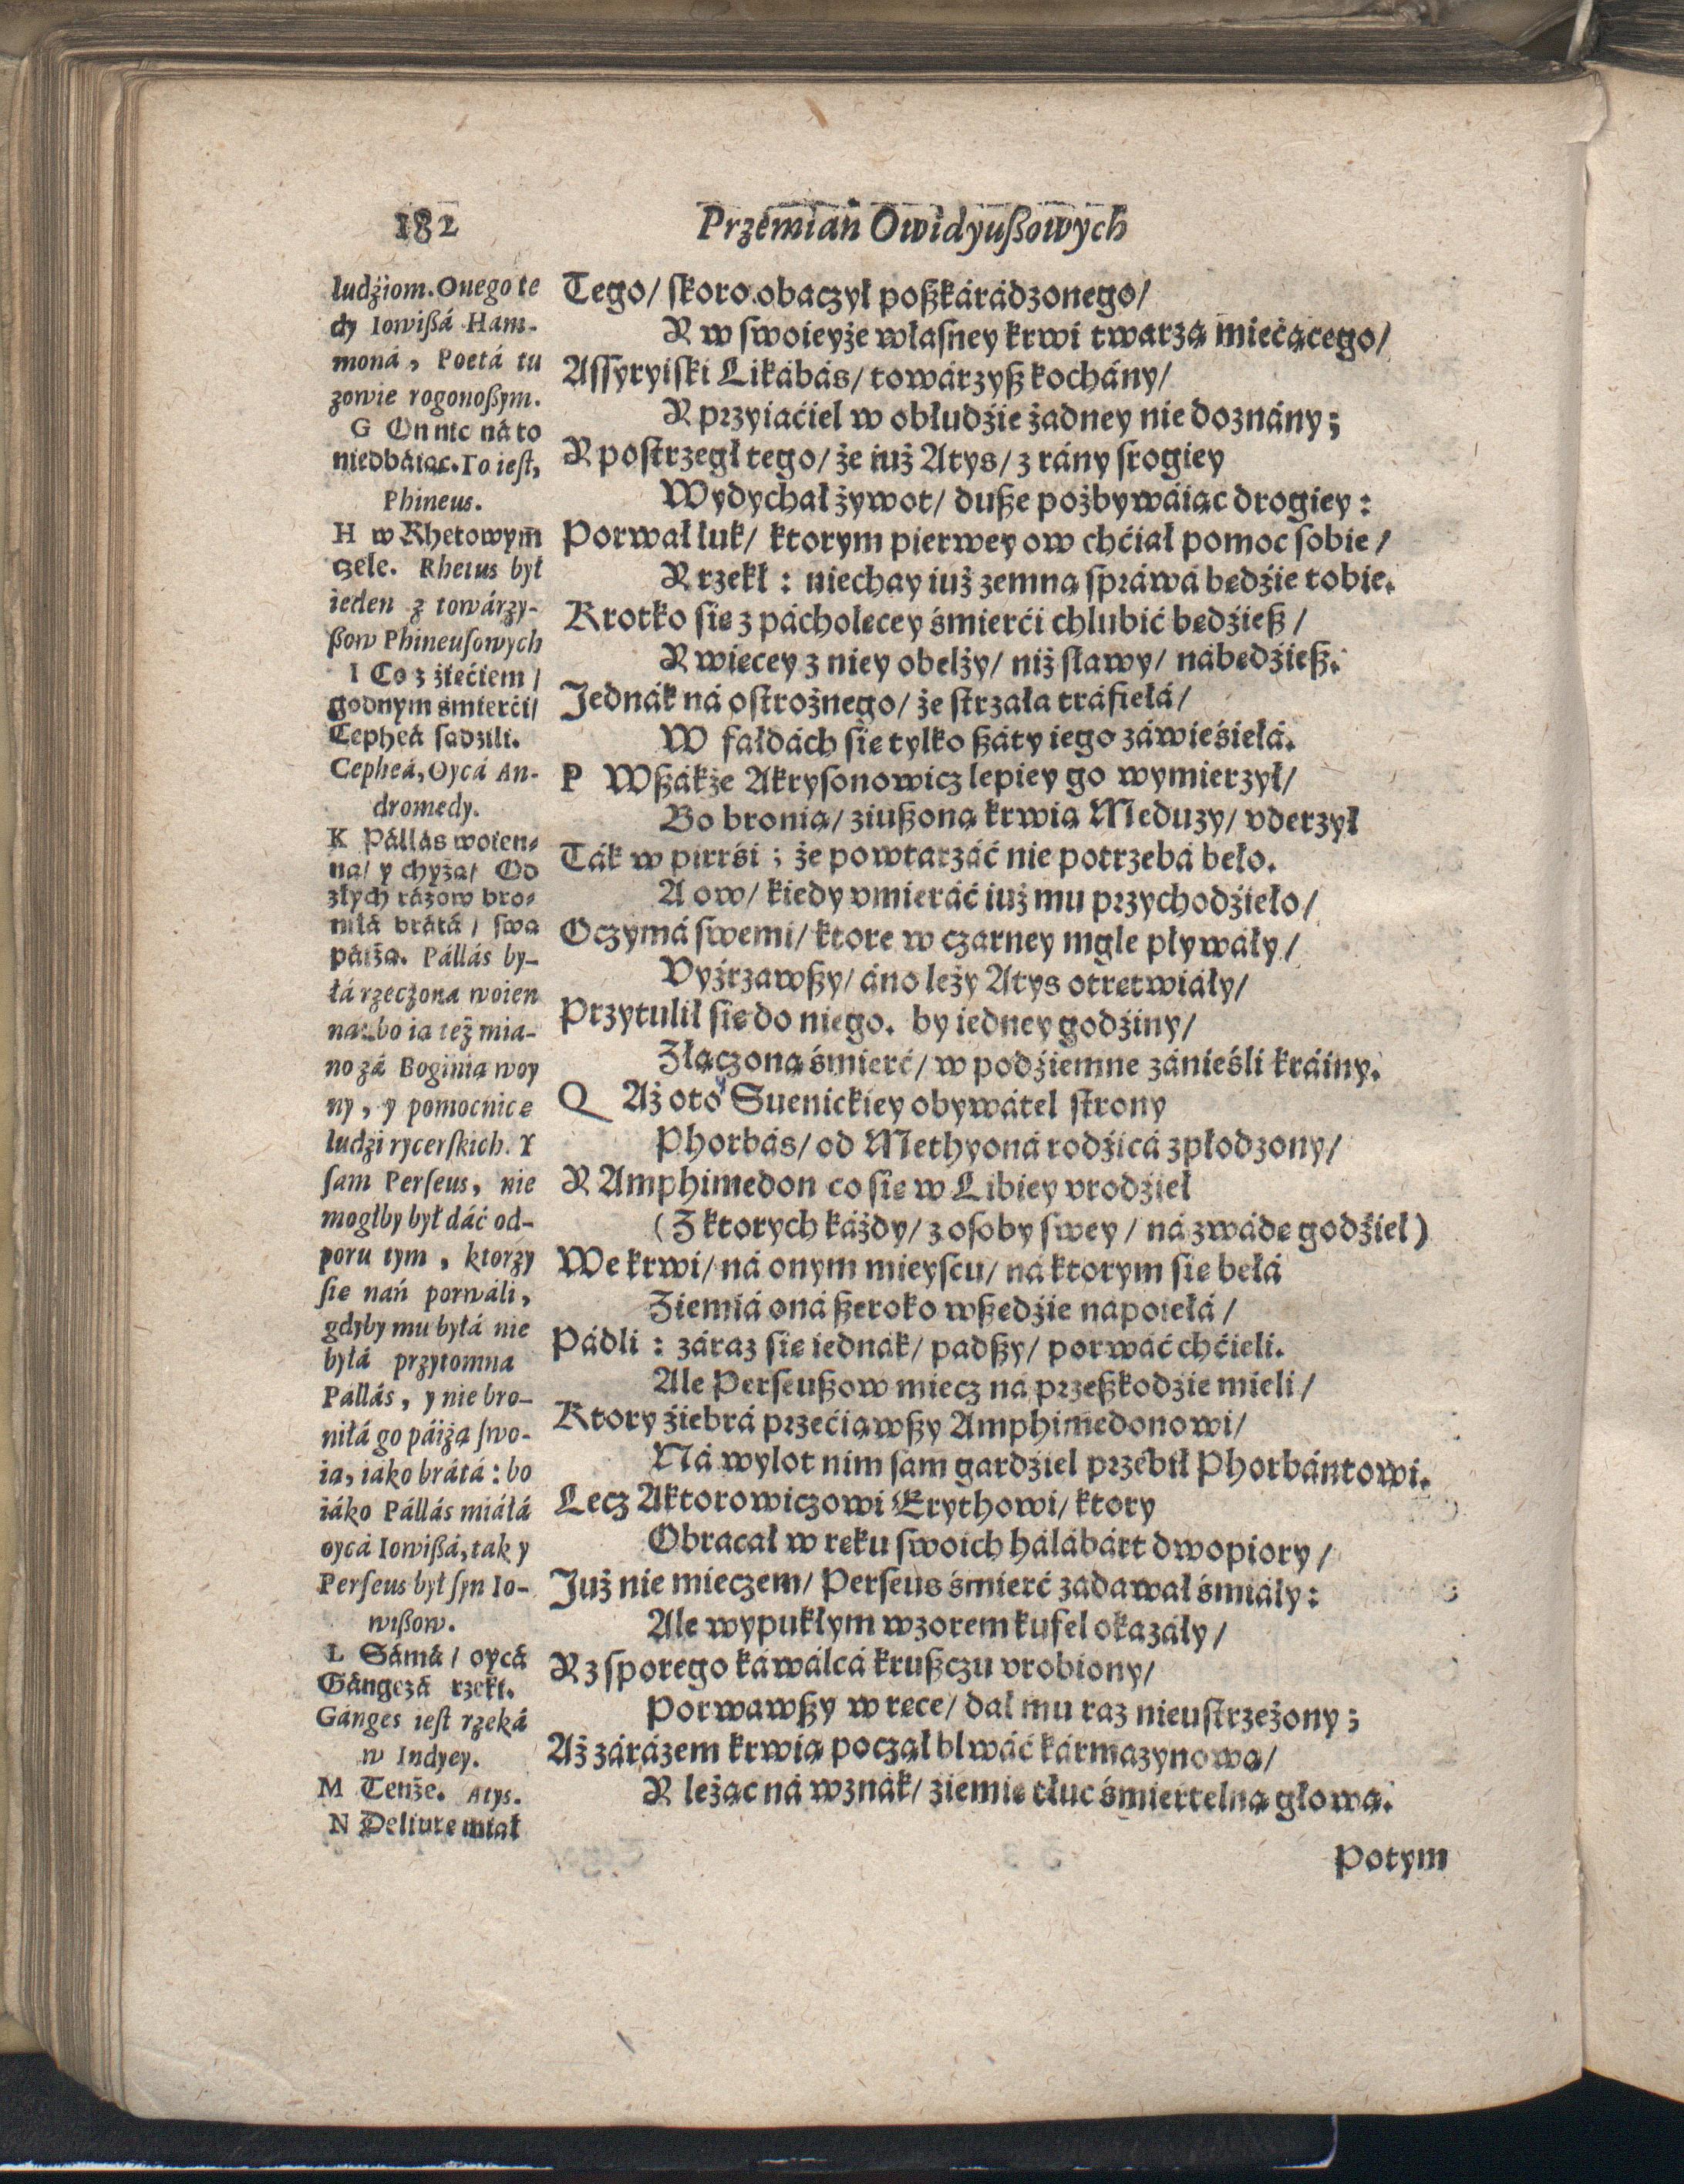 182
Przemian Owidyußowych
ludźiom. Ouego te
dy Iowißá Ham-
moná, Poetá tu
zowie rogonoßym.
G On nic ná to
niedbáiąc. To iest,
Phineus.
H w Rhetowym̄
czele. Rhetus był
ieden z towárzy-
ßow Phineusowych
I Co z źięćiem /
godnym śmierći/
Cepheá sadzili.
Cepheá, Oycá An-
dromedy.
K Pállás woien-
na/ y chyża/ Od
złych rázow bro-
niłá brátá / swą
páiżą. Pállás by-
łá rzeczona woien
na: bo ią też mia-
no zá Boginią woy
ny, y pomocnice
ludzi rycerskich. Y
sam Perseus, nie
mogłby był dáć od-
poru tym, ktorzy
sie nań porwáli,
gdyby mu byłá nie
byłá przytomna
Pállás, y nie bro-
niłá go páiżą swo-
ią, iáko brátá: bo
iáko Pállás miáłá
oycá Iowißá, tak y
Perseus był syn Io-
wißow.
L Sámá / oycá
Gángezá rzekł.
Gánges iest rzeká
w Indyey.
M Tenże. Atys.
N Deliure miał
Tego/ skoro obaczył poßkárádzonego/
Y w swoieyże własney krwi twarzą miecącego/
Assyryiski Likábás/ towárzyß kochány/
Y przyiaćiel w obłudźie żadney nie doznány;
Y postrzegł tego/ że iuż Atys/ z rány srogiey
Wydychał żywot/ duße pożbywáiąc drogiey:
Porwał łuk/ ktorym pierwey ow chćiał pomoc sobie/
Y rzekł: niechay iuż zemną spráwá będźie tobie.
Krotko sie z pácholęcey śmierći chlubić będźieß/
Y więcey z niey obelży/ niż sławy/ nábędźieß.
Jednák ná ostrożnego/ że strzała tráfiełá/
W fałdách sie tylko ßáty iego záwieśiełá.
P Wßákże Akrysonowicz lepiey go wymierzył/
Bo bronią/ ziußoną krwią Meduzy/ vderzył
Ták w pirrśi; że powtarzáć nie potrzebá beło.
A ow/ kiedy vmieráć iuż mu przychodźieło/
Oczymá swemi/ ktore w czarney mgle pływáły/
Vyźrzawßy/ áno leży Atys otrętwiáły/
Przytulił sie do niego. by iedney godźiny/
Złączoną śmierć/ w podźiemne zánieśli kráiny.
Q Aż oto Suenickiey obywátel strony
Phorbás/ od Methyoná rodźicá zpłodzony/
Y Amphimedon co sie w Libiey vrodźieł
(Z ktorych káżdy/ z osoby swey/ ná zwádę godźieł)
We krwi/ ná onym mieyscu/ ná ktorym sie bełá
Ziemiá oná ßeroko wßędźie nápoiełá/
Pádli: záraz sie iednák/ padßy/ porwáć chćieli.
Ale Perseußow miecz ná przeßkodźie mieli/
Ktory źiebrá przećiąwßy Amphimedonowi/
Ná wylot nim sam gardźiel przebił Phorbántowi.
Lecz Aktorowiczowi Erythowi/ ktory
Obracał w ręku swoich hálábárt dwopiory/
Już nie mieczem/ Perseus śmierć zadawał śmiáły:
Ale wypukłym wzorem kufel okazáły/
Y z sporego káwálcá krußczu vrobiony/
Porwawßy w ręce/ dał mu raz nieustrzeżony;
Aż zárázem krwią począł blwáć kármazynową/
Y leżąc ná wznák/ źiemię tłuc śmiertelną głową.
Potym